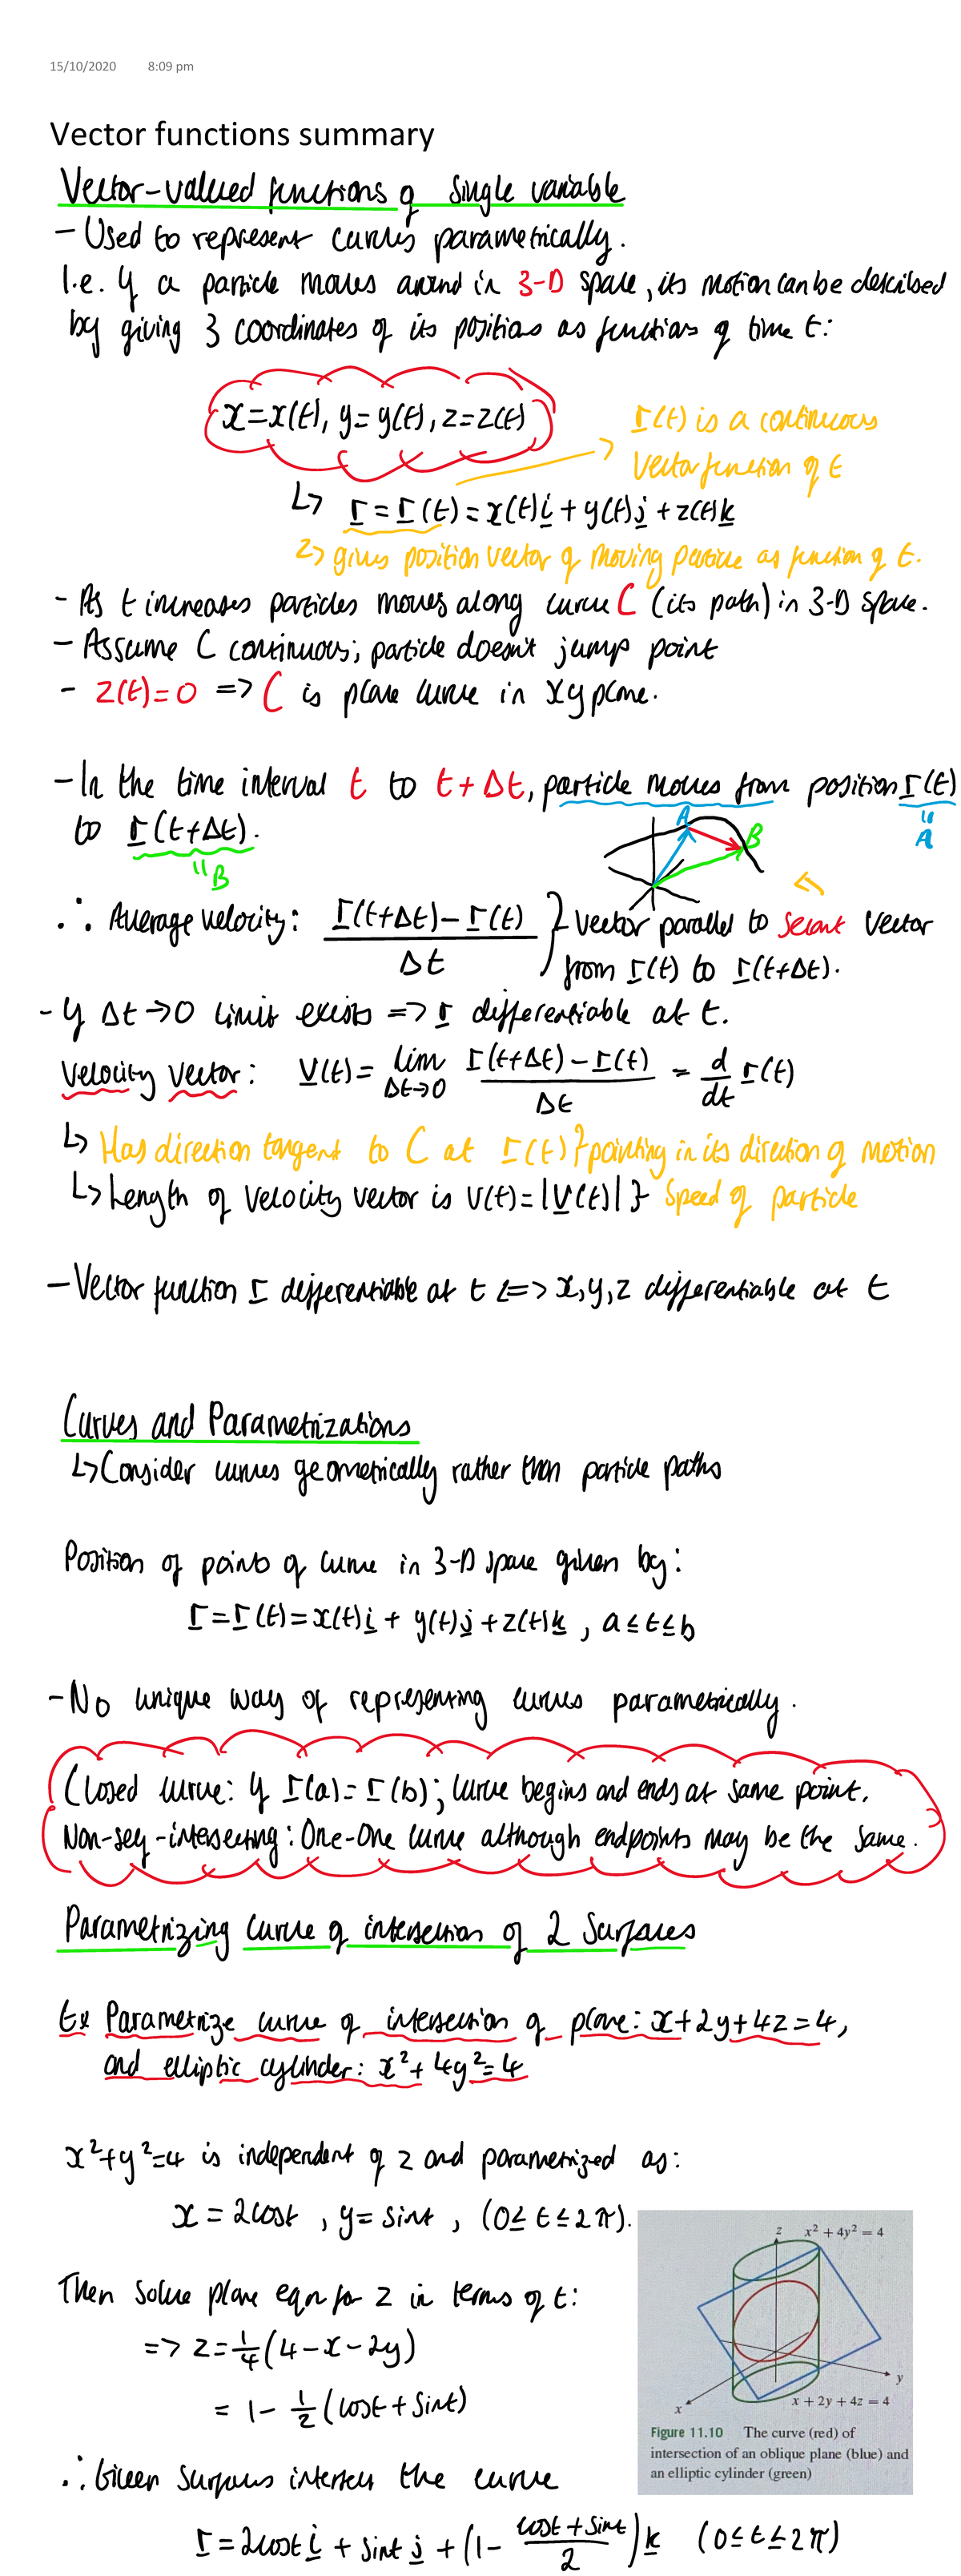 15/10/2020 8:09 pm
Vector functions summary
Vector-valued functions of single variable
- Used to represent curves parametrically.
I.e. If a particle moves around in 3-D space, its motion can be described
by giving 3 coordinates of its positions as functions of time t:
x=x(t), y=y(t), z=z(t)
r(t) is a continuous
vector function of t
↳ r=r(t)=x(t)i+y(t)j+z(t)k
↳ gives position vector of moving particle as function of t.
- As t increases particles moves along curve C (its path) in 3-D space.
- Assume C continuous; particle doesn't jump point
- z(t)=0 => C is plane curve in xy plane.
- In the time interval t to t+Δt, particle moves from position r(t)
to r(t+Δt).
"A
"B
A B
∴ Average velocity: (r(t+Δt)-r(t))/Δt } vector parallel to secant vector
from r(t) to r(t+Δt).
- If Δt→0 limit exists => r differentiable at t.
Velocity vector: v(t)= lim Δt→0 (r(t+Δt)-r(t))/Δt = d/dt r(t)
↳ Has direction tangent to C at r(t) } pointing in its direction of motion
↳ Length of velocity vector is v(t)=|v(t)| } Speed of particle
- Vector function r differentiable at t <=> x,y,z differentiable at t
Curves and Parametrizations
↳ Consider curves geometrically rather then particle paths
Position of points of curve in 3-D space given by:
r=r(t)=x(t)i+y(t)j+z(t)k, a≤t≤b
- No unique way of representing curves parametrically.
Closed curve: If r(a)=r(b); curve begins and ends at same point.
Non-self-intersecting: One-One curve although endpoints may be the same.
Parametrizing curve of intersection of 2 Surfaces
Ex Parametrize curve of intersection of plane: x+2y+4z=4,
and elliptic cylinder: x²+4y²=4
x²+y²=4 is independent of z and parametrized as:
x=2cost, y=sint, (0≤t≤2π).
Then solve plane eqn for z in terms of t:
=> z=1/4(4-x-2y)
= 1-1/2(cost+sint)
∴ Given surfaces intersect the curve
r=2cost i + sint j + (1-(cost+sint)/2)k (0≤t≤2π)
z x² + 4y² = 4
y
x x + 2y + 4z = 4
Figure 11.10 The curve (red) of
intersection of an oblique plane (blue) and
an elliptic cylinder (green)